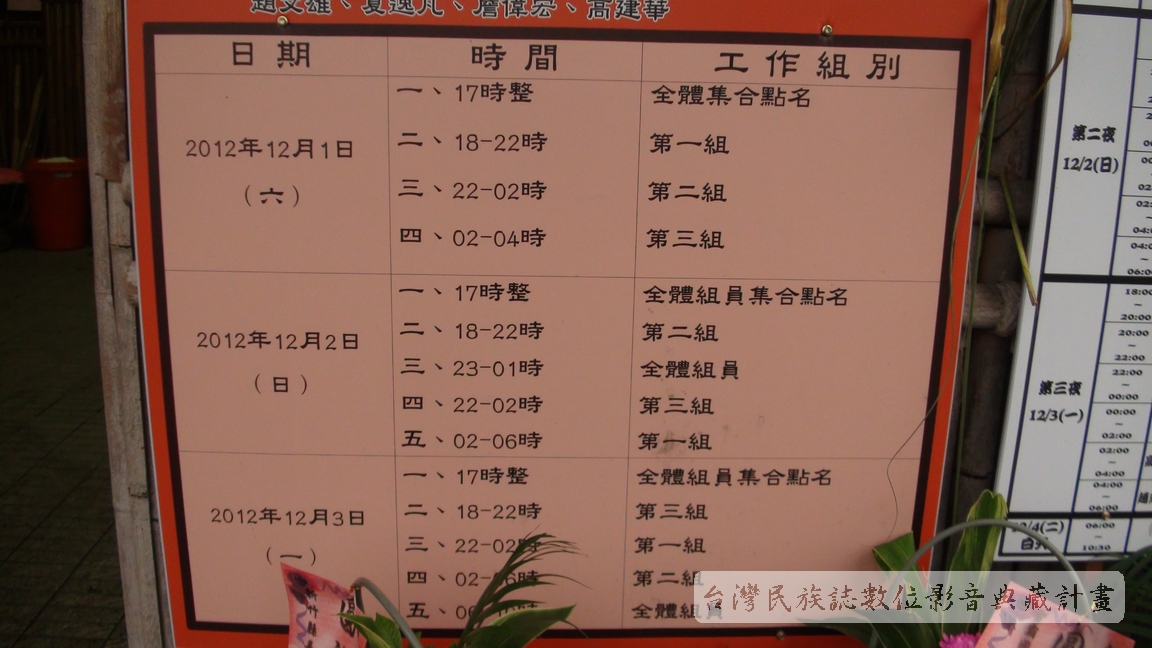 趙文雄、夏逸凡、詹偉宏、高建華
日期 時間 工作組別
2012年12月1日
（六）
一、17時整 全體集合點名
二、18-22時 第一組
三、22-02時 第二組
四、02-04時 第三組
2012年12月2日
（日）
一、17時整 全體組員集合點名
二、18-22時 第二組
三、23-01時 全體組員
四、22-02時 第三組
五、02-06時 第一組
2012年12月3日
（一）
一、17時整 全體組員集合點名
二、18-22時 第三組
三、22-02時 第一組
四、02-06時 第二組
五、 全體組員
第二夜
12/2(日)
第三夜
12/3(一)
18:00
~
20:00
20:00
~
22:00
22:00
~
00:00
00:00
~
02:00
02:00
~
04:00
04:00
~
06:00
06:00
~
10:30
台灣民族誌數位影音典藏計畫